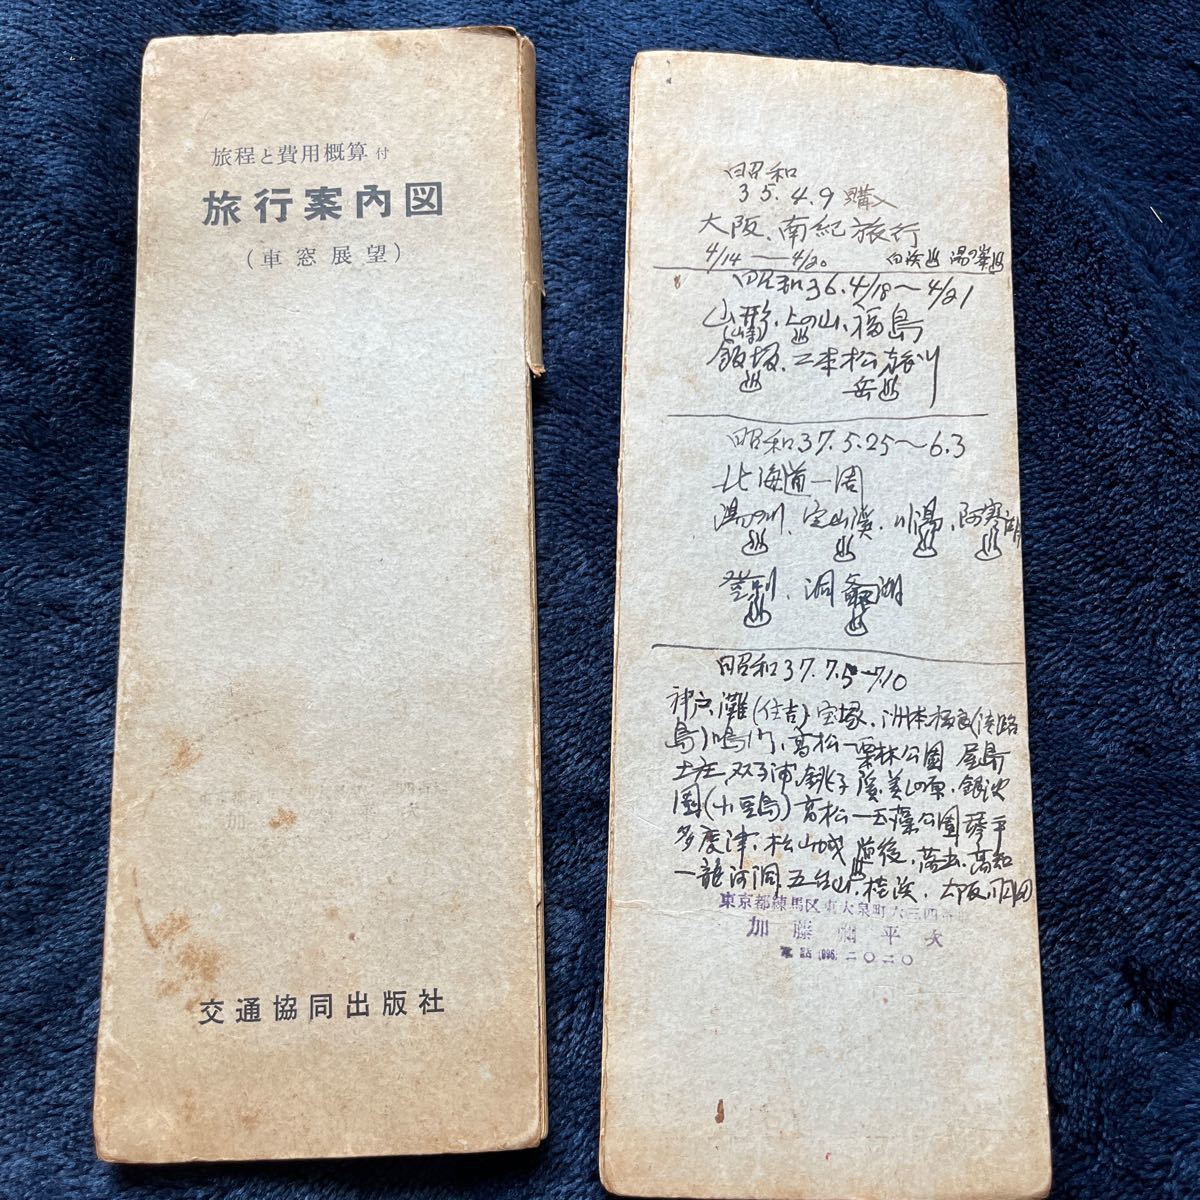 旅程と費用概算付
旅行案内図
(車窓展望)
交通協同出版社
昭和
35.4.9購入
大阪、南紀旅行
4/14〜4/20 白浜♨ 湯の峯♨
昭和36.4/18〜4/21
山形、上の山、福島
♨
飯坂、二本松
♨ 岳♨
昭和37.5.25〜6.3
北海道一周
湯の川、定山渓、川湯、阿寒湖
♨ ♨ ♨ ♨
登別、洞爺湖
♨ ♨
昭和37.7.5〜7.10
神戸、灘(住吉)、宝塚、洲本(淡路
島)鳴門、高松一栗林公園 屋島
土庄、双子浦、銚子渓、美しの原、
園(小豆島)高松一玉藻公園 琴平
多度津、松山城、道後、高知
一龍河洞、五台山、桂浜、大阪
東京都練馬区東大泉町六三四番地
加藤 平次
電話(996)二〇二〇